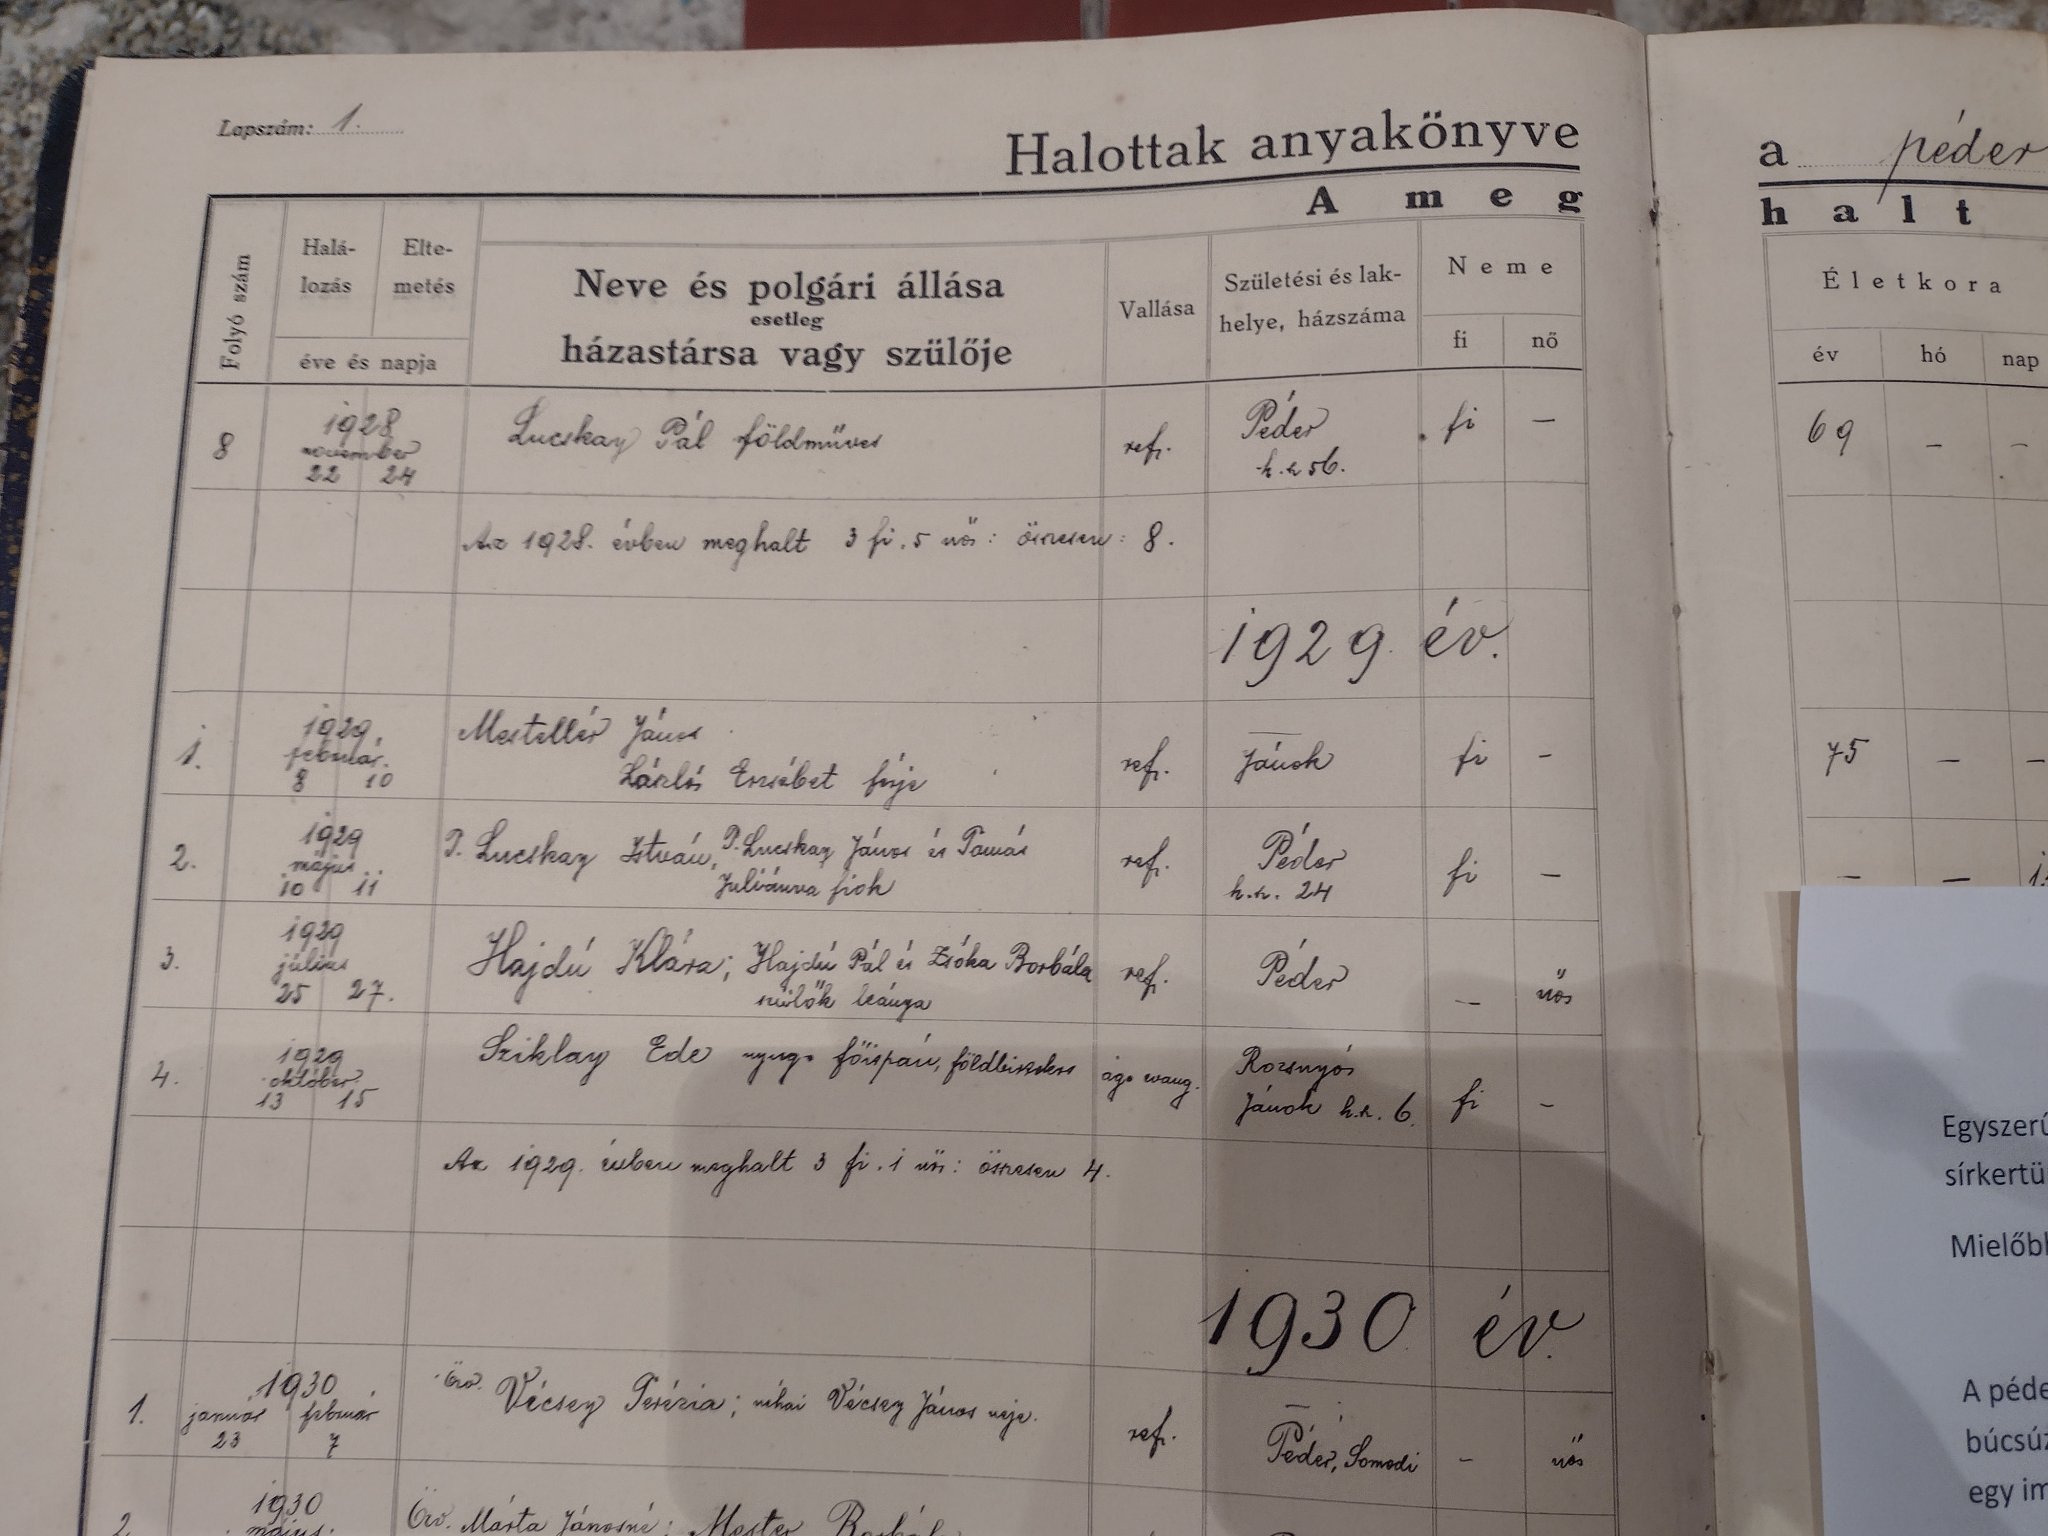 Lapszám: 1.
Halottak anyakönyve
a péder
A meg
halt
Folyó szám
Halá-
lozás
Elte-
metés
éve és napja
Neve és polgári állása
esetleg
házastársa vagy szülője
Vallása
Születési és lak-
helye, házszáma
Neme
fi nő
Életkora
év hó nap
8
1928
november
22 24
Lucskay Pál földműves
ref.
Péder
h.sz 56.
fi —
69 — —
Az 1928. évben meghalt 3 fi. 5 nős: összesen: 8.
1929. év.
1.
1929.
február.
8 10
Mestellér János
László Erzsébet férje
ref.
Jánok
fi -
75 — —
2.
1929
május
10 11
P. Lucskay István, P. Lucskay János és Tamás
Juliánna fiok
ref.
Péder
h.sz. 24
fi —
— —
3.
1929
július
25 27.
Hajdú Klára; Hajdú Pál és Zsóka Borbála
szülők leánya
ref.
Péder
— nős
4.
1929
október.
13 15
Sziklay Ede nyug. főispán, földbirtokos
ág. evang.
Rozsnyó
Jánok h.sz. 6.
fi -
Az 1929. évben meghalt 3 fi. 1 nős: összesen 4.
1930. év.
1.
1930
január február
23 7
Özv. Vécsey Terézia; néhai Vécsey János neje.
ref.
Péder, Somodi
- nős
2.
1930
május.
Özv. Márta Jánosné; Mester Borbála
Egyszerű
sírkertü
Mielőbb
A péde
búcsúz
egy im